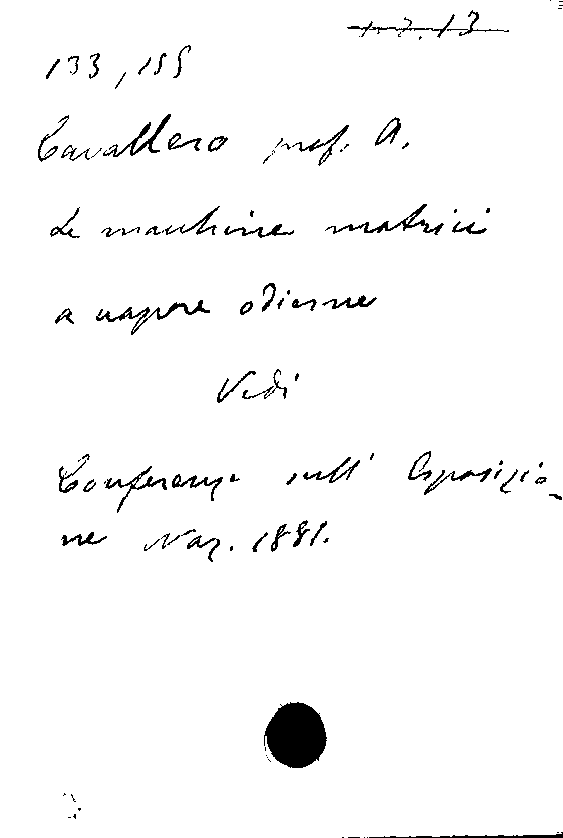 1.7.13
133,155
Cavallero prof. A.
Le macchine motrici
a vapore odierne
Vedi
Conferenze sull' Esposizio-
ne Naz. 1881.